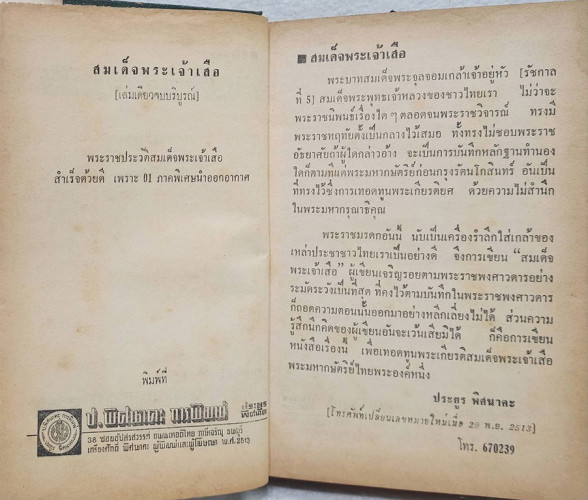 สมเด็จพระเจ้าเสือ
[เล่มเดียวจบบริบูรณ์]
พระราชประวัติสมเด็จพระเจ้าเสือ
สำเร็จด้วยดี เพราะ 01 ภาคพิเศษนำออกอากาศ
พิมพ์ที่
ป. พิศนาคะ การพิมพ์
38 ซอยอัปสรสวรรค์ ถนนเทอดไท ภาษีเจริญ ธนบุรี
เกรียงศักดิ์ พิศนาคะ ผู้พิมพ์และผู้โฆษณา พ.ศ. 2513
สมเด็จพระเจ้าเสือ
พระบาทสมเด็จพระจุลจอมเกล้าเจ้าอยู่หัว [รัชกาล
ที่ 5] สมเด็จพระพุทธเจ้าหลวงของชาวไทยเรา ไม่ว่าจะ
พระราชนิพนธ์เรื่องใด ๆ ตลอดจนพระราชวิจารณ์ ทรงมี
พระราชหฤทัยตั้งเป็นกลางไว้เสมอ ทั้งทรงไม่ชอบพระราช
อัธยาศัยถ้าผู้ใดกล่าวอ้าง จะเป็นการบันทึกหลักฐานทำนอง
ใดก็ตามที่แด่พระมหากษัตริย์ก่อนกรุงรัตนโกสินทร์ อันเป็น
ที่ทรงไว้ซึ่งการเทอดทูนพระเกียรติยศ ด้วยความไม่สำนึก
ในพระมหากรุณาธิคุณ
พระราชมรดกอันนี้ นับเป็นเครื่องรำลึกใส่เกล้าของ
เหล่าประชาชาวไทยเราเป็นอย่างดี จึงการเขียน "สมเด็จ
พระเจ้าเสือ" ผู้เขียนเจริญรอยตามพระราชพงศาวดารอย่าง
ระมัดระวังเป็นที่สุด ที่คงไว้ตามบันทึกในพระราชพงศาวดาร
ก็ถอดความตอนนั้นออกมาอย่างหลีกเลี่ยงไม่ได้ ส่วนความ
รู้สึกนึกคิดของผู้เขียนอันจะเว้นเสียมิได้ ก็คือการเขียน
หนังสือเรื่องนี้ เพื่อเทอดทูนพระเกียรติสมเด็จพระเจ้าเสือ
พระมหากษัตริย์ไทยพระองค์หนึ่ง
ประยูร พิศนาคะ
[โทรศัพท์เปลี่ยนเลขหมายใหม่เมื่อ 29 พ.ย. 2513]
โทร. 670239